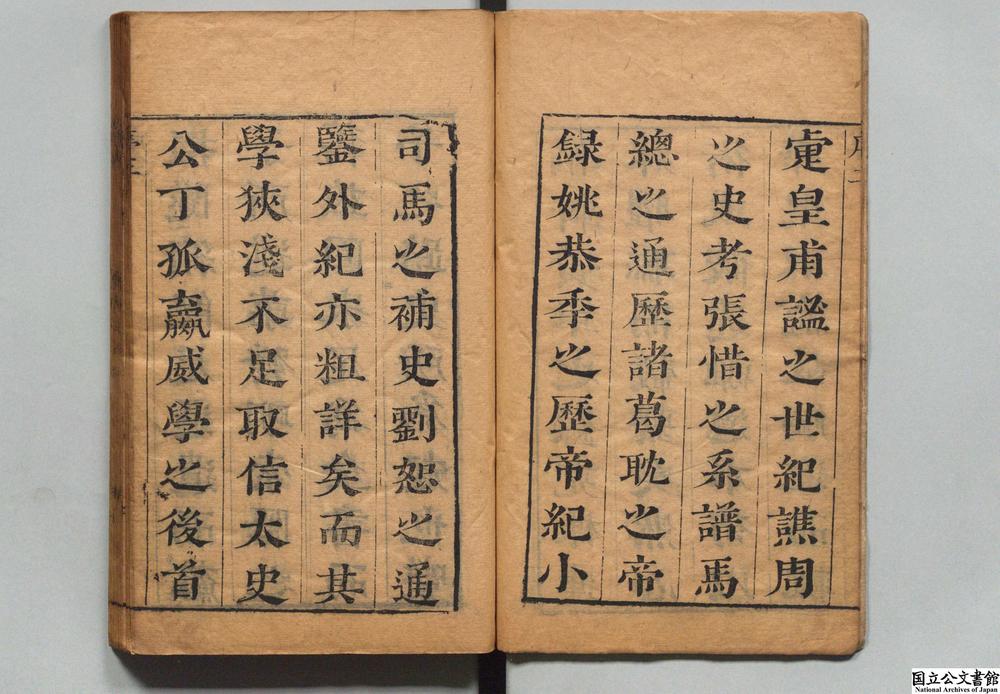 寔皇甫謐之世紀譙周
之史考張愔之系譜馬
總之通歷諸葛耽之帝
録姚恭季之歷帝紀小
司馬之補史劉恕之通
鑒外紀亦粗詳矣而其
學狹淺不足取信太史
公丁孤嬴威學之後首
国立公文書館
National Archives of Japan